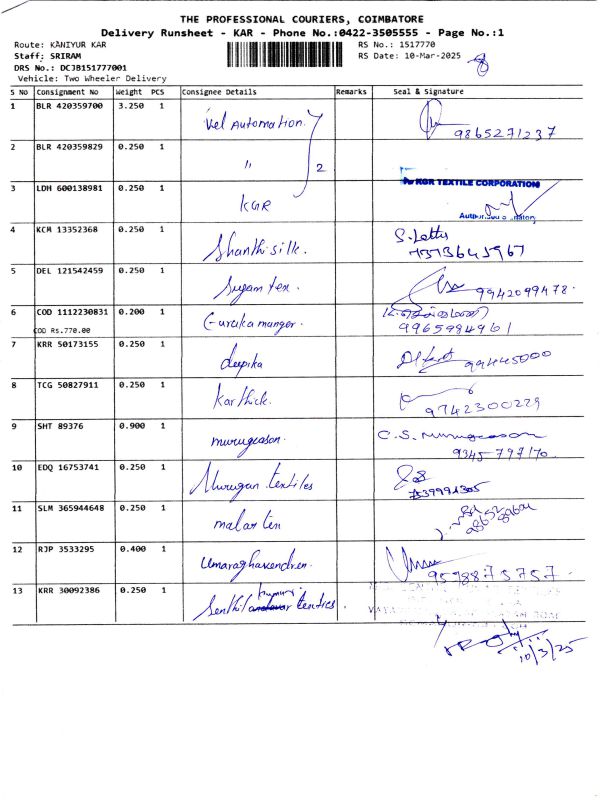 THE PROFESSIONAL COURIERS, COIMBATORE
Delivery Runsheet - KAR - Phone No.:0422-3505555 - Page No.:1
Route: KANIYUR KAR RS No.: 1517770
Staff: SRIRAM RS Date: 10-Mar-2025
DRS No.: DCJB151777001
Vehicle: Two Wheeler Delivery
S No Consignment No Weight PCS Consignee Details Remarks Seal & Signature
1 BLR 420359700 3.250 1 Vel Automation. 9865271237
2 BLR 420359829 0.250 1 " 2
3 LDH 600138981 0.250 1 KGR For KGR TEXTILE CORPORATION
4 KCM 13352368 0.250 1 Shanthi silk. 7373645967
5 DEL 121542459 0.250 1 Sugam tex. 9942099478.
6 COD 1112230831 0.200 1
COD Rs.770.00 9965984961
7 KRR 50173155 0.250 1 deepika 99445000
8 TCG 50827911 0.250 1 Karthick. 9742300229
9 SHT 89376 0.900 1 murugeason. C.S. Murugeason
9345797170.
10 EDQ 16753741 0.250 1 Murugan textiles
11 SLM 365944648 0.250 1 malar tex
12 RJP 3533295 0.400 1 Umaraghavendren. 9598875757.
13 KRR 30092386 0.250 1 Senthil textiles.
10/3/25